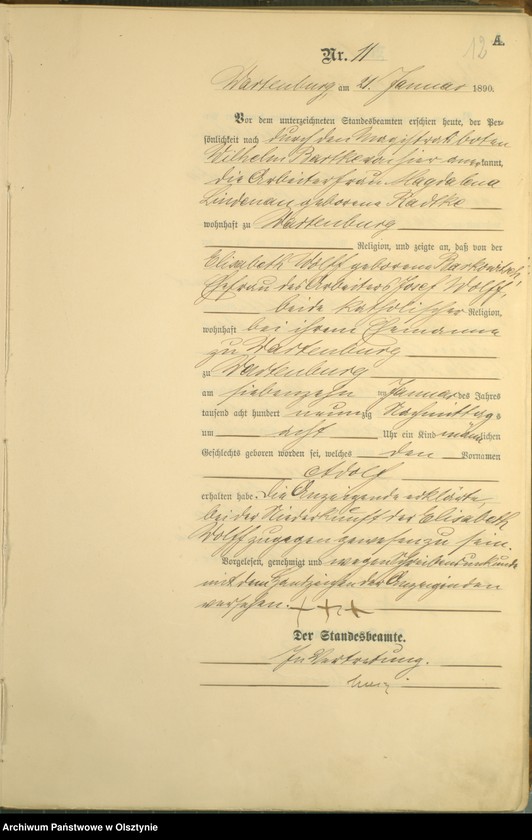 12 A.
Nr. 11
Wartenburg, am 21. Januar 1890.
Vor dem unterzeichneten Standesbeamten erschien heute, der Per-
sönlichkeit nach durch den Magistratsboten
Wilhelm hier anerkannt,
die Arbeiterfrau Magdalena
Lindenau geborene Radtke
wohnhaft zu Wartenburg
Religion, und zeigte an, daß von der
Elisabeth Wolff geborene
Ehefrau des Arbeiters Josef Wolff,
beide katholischer Religion,
wohnhaft bei ihrem Ehemanne
zu Wartenburg
zu Wartenburg
am siebenzehn ten Januar des Jahres
tausend acht hundert neunzig Nachmittags
um acht Uhr ein Kind männlichen
Geschlechts geboren worden sei, welches den Vornamen
Adolf
erhalten habe. Die Anzeigende erklärte
bei der Niederkunft der Elisabeth
Wolff zugegen gewesen zu sein.
Vorgelesen, genehmigt und wegen Schreibensunkunde
mit dem Handzeichen der Anzeigenden
versehen. +++
Der Standesbeamte.
In Vertretung.
Archiwum Państwowe w Olsztynie